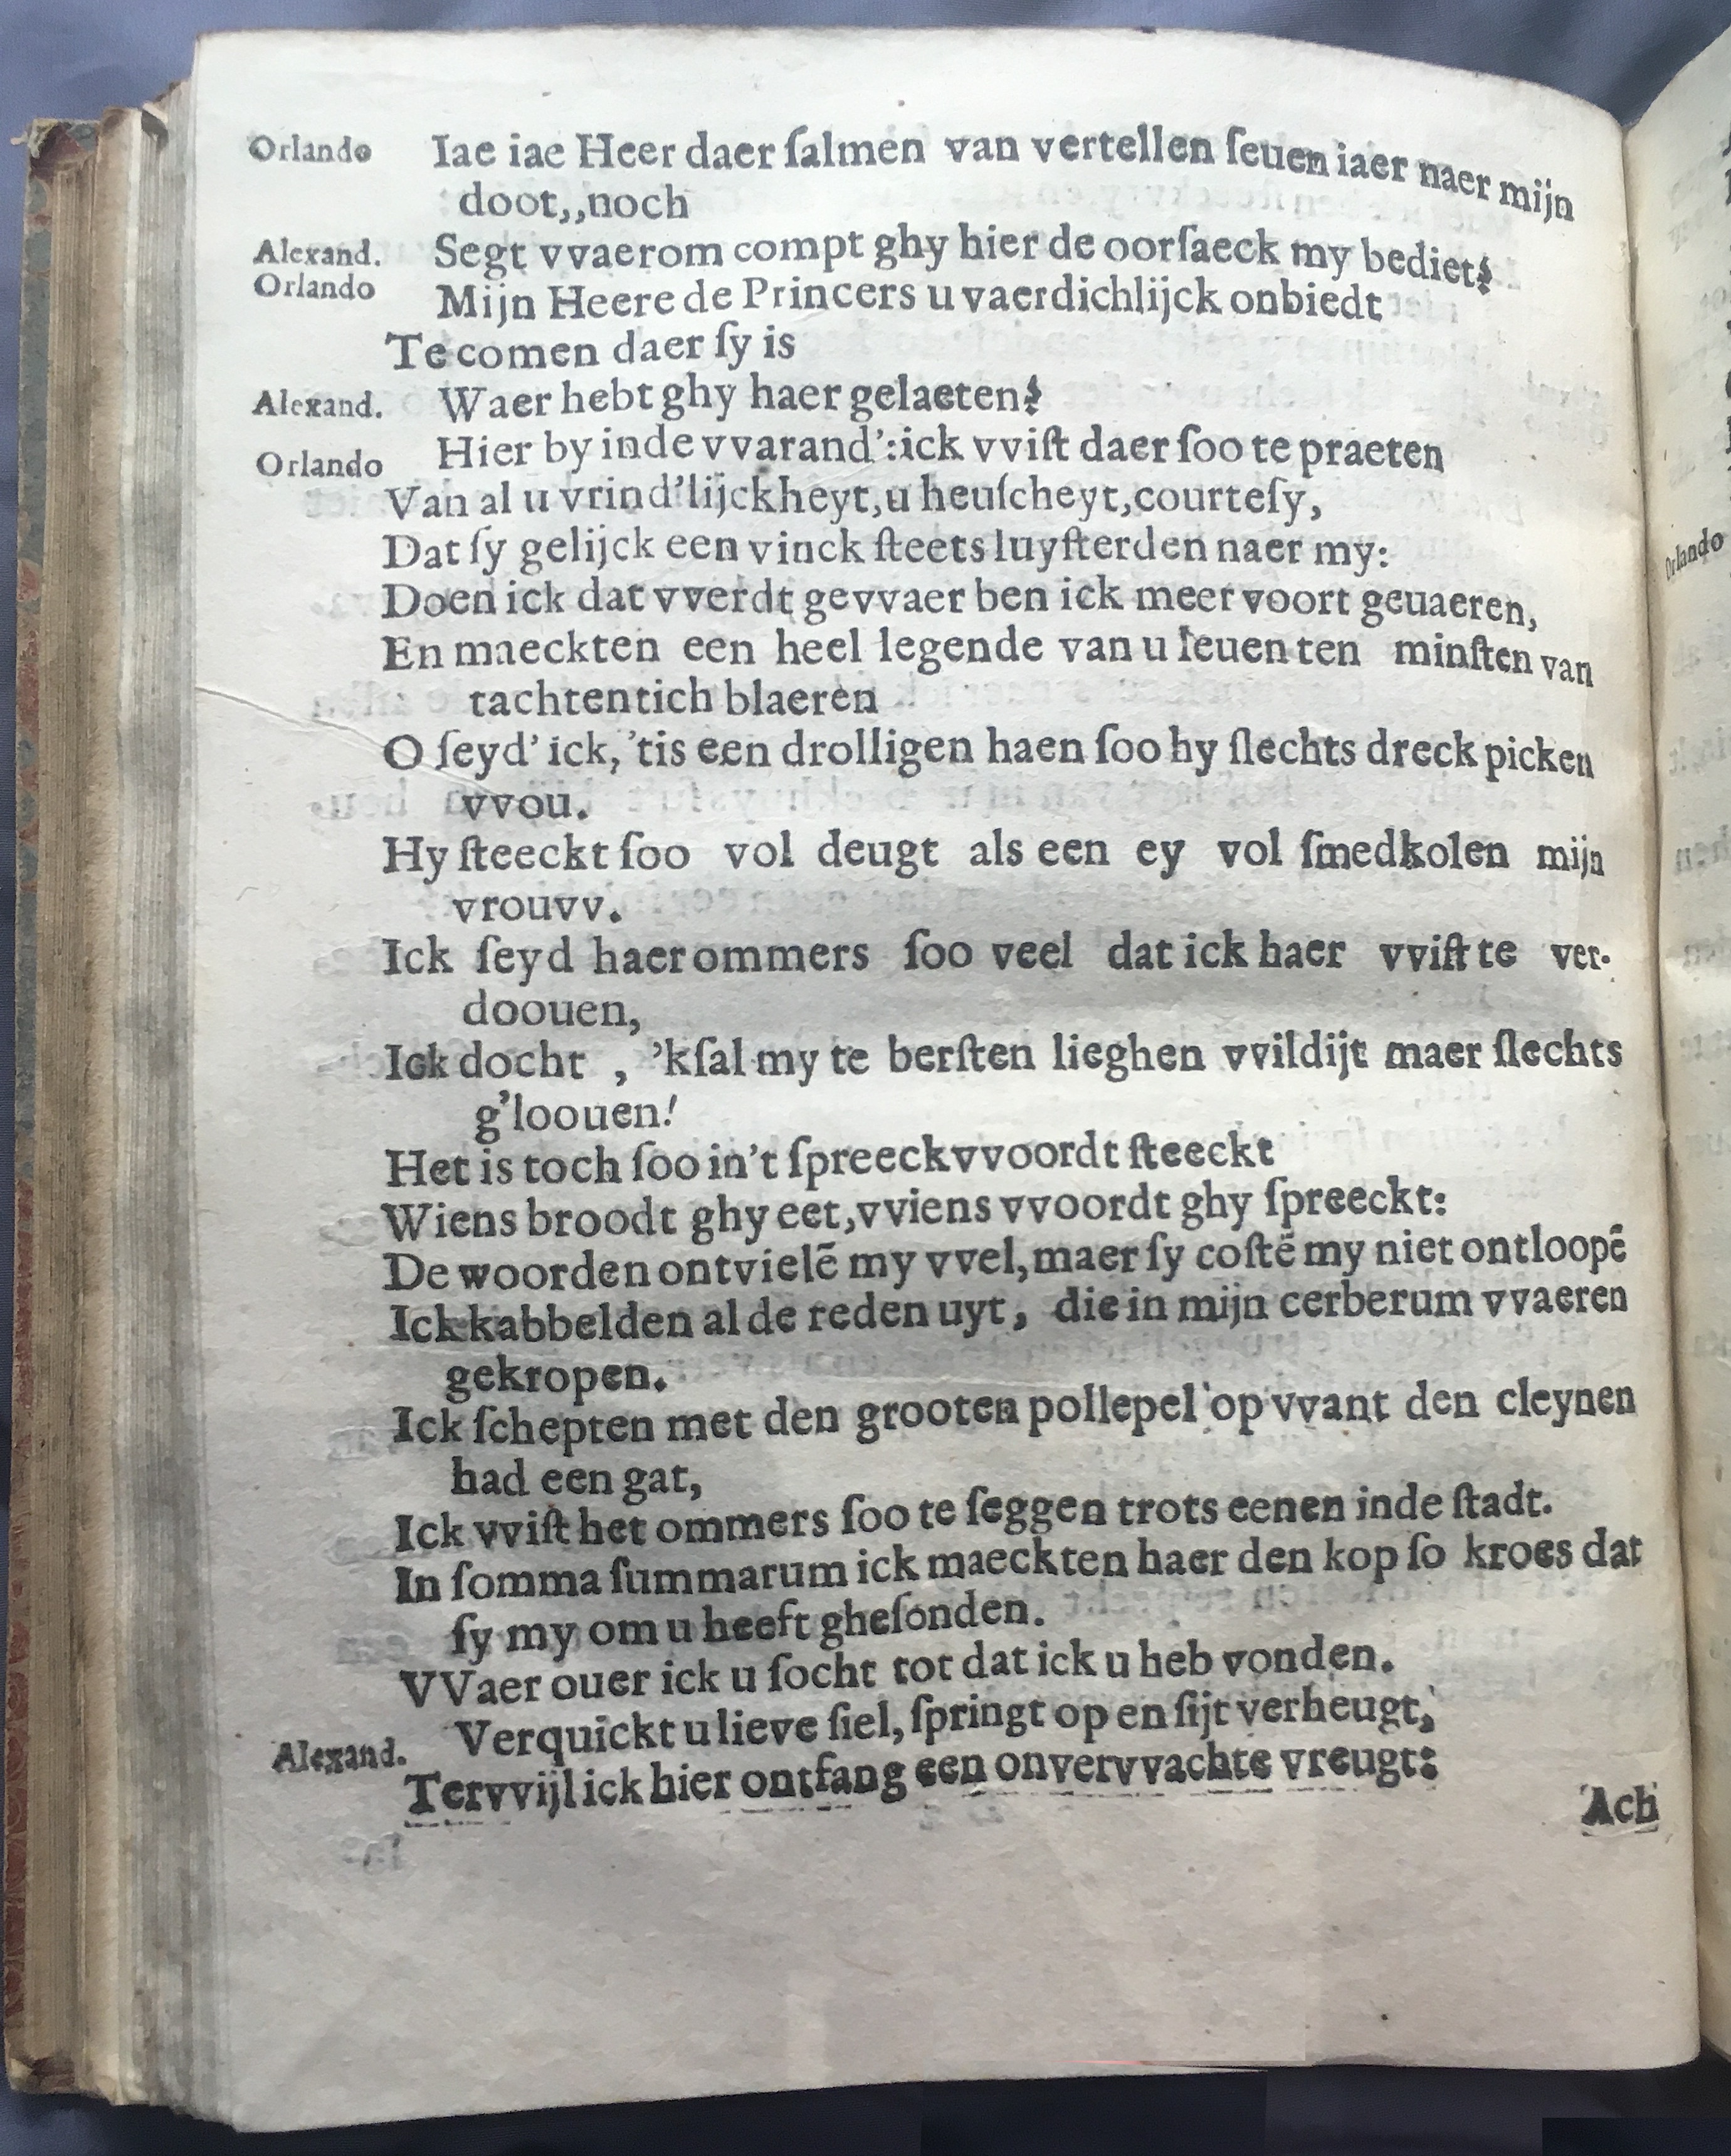 Orlando Iae iae Heer daer ſalmen van vertellen ſeuen iaer naer mijn
doot,,noch
Alexand. Segt vvaerom compt ghy hier de oorſaeck my bediet?
Orlando Mijn Heere de Princers u vaerdichlijck onbiedt
Te comen daer ſy is
Alexand. Waer hebt ghy haer gelaeten?
Orlando Hier by inde vvarand':ick vviſt daer ſoo te praeten
Van al u vrind'lijckheyt,u heuſcheyt,courteſy,
Dat ſy gelijck een vinck ſteets luyſterden naer my:
Doen ick dat vverdt gevvaer ben ick meer voort geuaeren,
En maeckten een heel legende van u leuen ten minſten van
tachtentich blaeren
O ſeyd' ick, 'tis een drolligen haen ſoo hy ſlechts dreck picken
vvou.
Hy ſteeckt ſoo vol deugt als een ey vol ſmedkolen mijn
vrouvv.
Ick ſeyd haer ommers ſoo veel dat ick haer vviſt te ver-
doouen,
Ick docht , 'kſal my te berſten lieghen vvildijt maer ſlechts
g'loouen!
Het is toch ſoo in't ſpreeckvvoordt ſteeckt
Wiens broodt ghy eet,vviens vvoordt ghy ſpreeckt:
De woorden ontvielē my vvel,maer ſy coſtē my niet ontloopē
Ick kabbelden al de reden uyt, die in mijn cerberum vvaeren
gekropen.
Ick ſchepten met den grooten pollepel op vvant den cleynen
had een gat,
Ick vviſt het ommers ſoo te ſeggen trots eenen inde ſtadt.
In ſomma ſummarum ick maeckten haer den kop ſo kroes dat
ſy my om u heeft gheſonden.
VVaer ouer ick u ſocht tot dat ick u heb vonden.
Alexand. Verquickt u lieve ſiel, ſpringt op en ſijt verheugt,
Tervvijl ick hier ontfang een onvervvachte vreugt:
Ach
Orlando